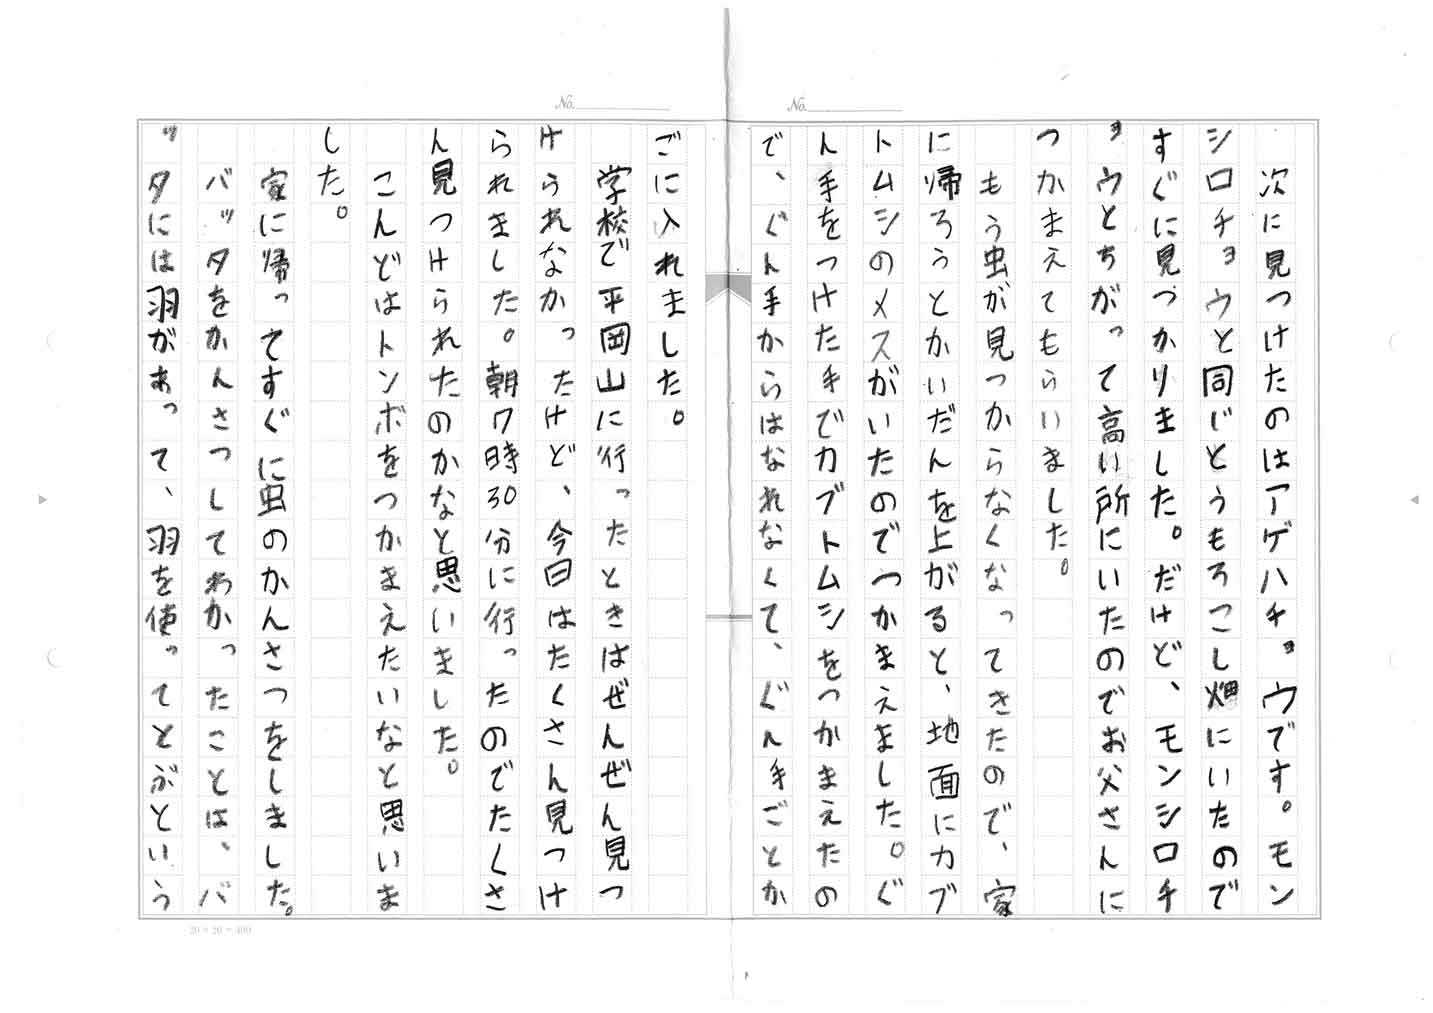 No.
次に見つけたのはアゲハチョウです。モン
シロチョウと同じとうもろこし畑にいたので
すぐに見つかりました。だけど、モンシロチ
ョウとちがって高い所にいたのでお父さんに
つかまえてもらいました。
もう虫が見つからなくなってきたので、家
に帰ろうとかいだんを上がると、地面にカブ
トムシのメスがいたのでつかまえました。ぐ
ん手をつけた手でカブトムシをつかまえたの
で、ぐん手からはなれなくて、ぐん手ごとか
No.
ごに入れました。
学校で平岡山に行ったときはぜんぜん見つ
けられなかったけど、今日はたくさん見つけ
られました。朝7時30分に行ったのでたくさ
ん見つけられたのかなと思いました。
こんどはトンボをつかまえたいなと思いま
した。
家に帰ってすぐに虫のかんさつをしました。
バッタをかんさつしてわかったことは、バ
ッタには羽があって、羽を使ってとぶという
20×20=400